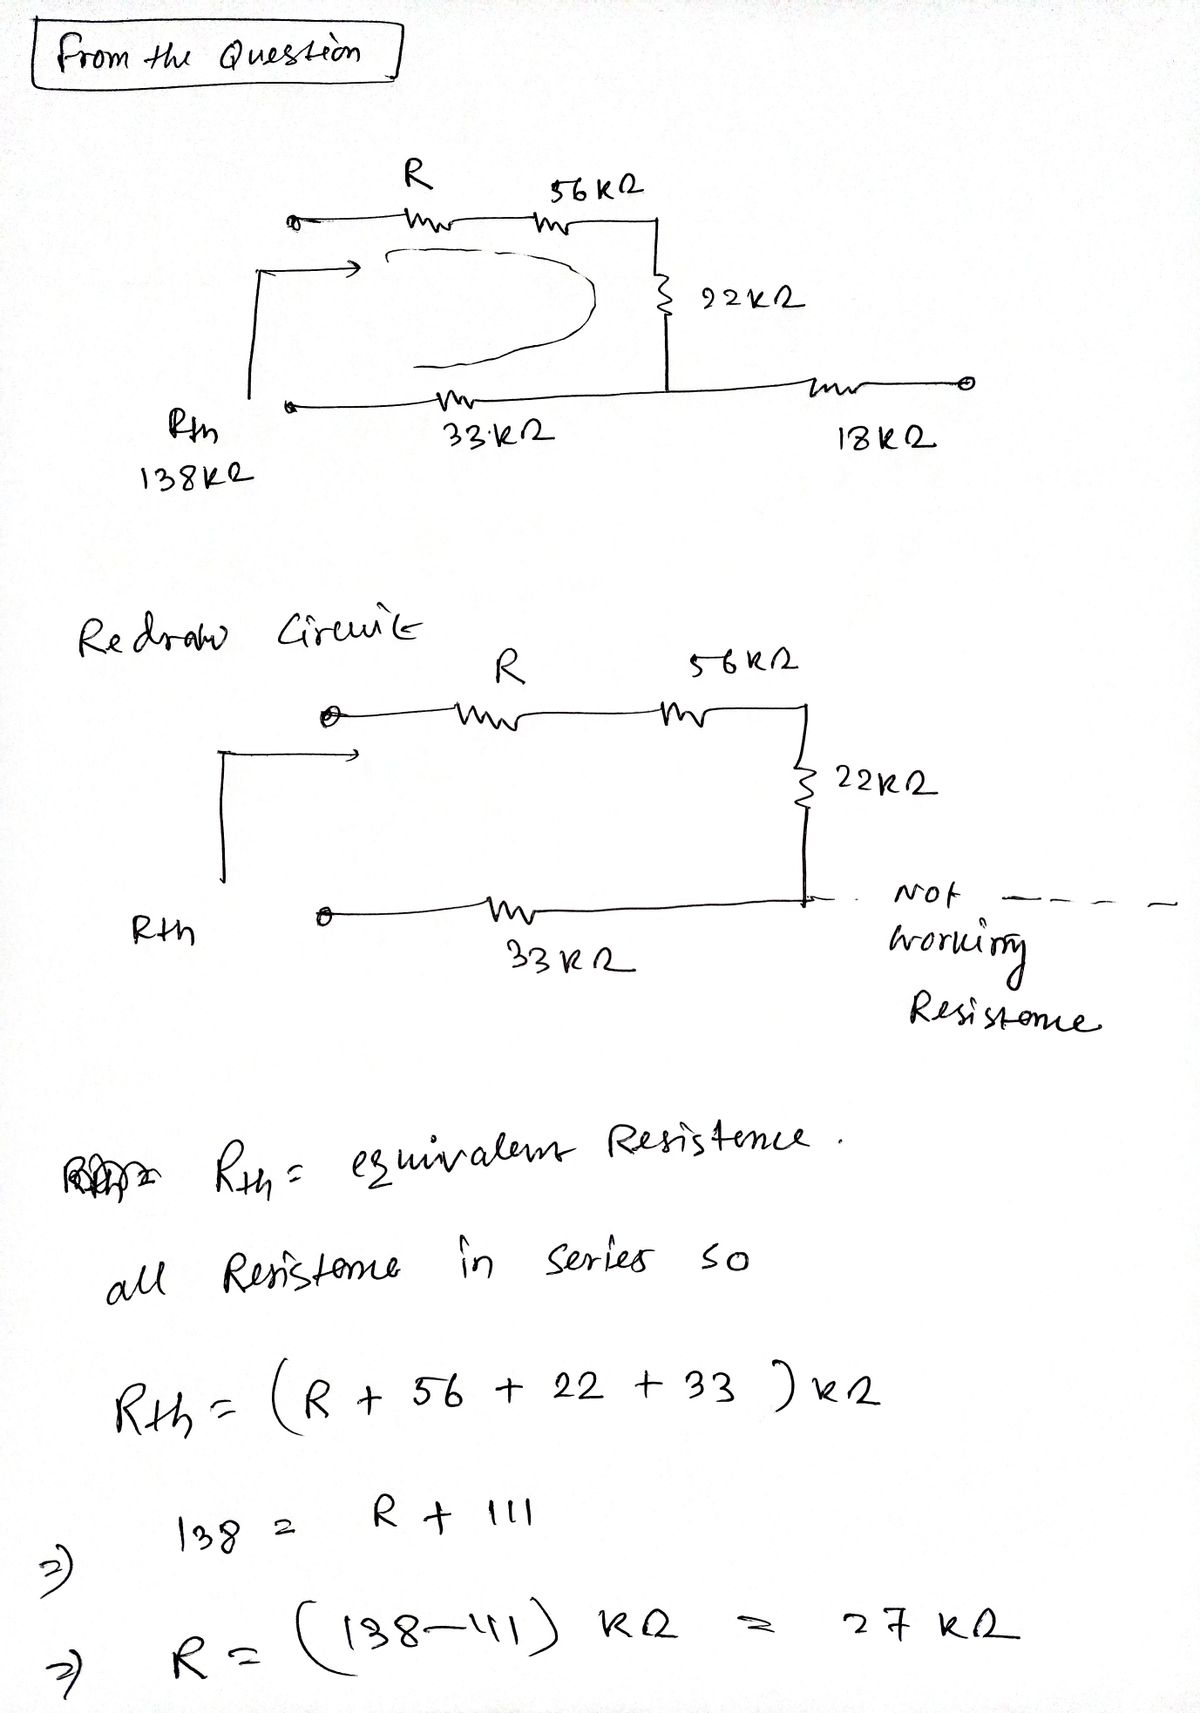 From the Question
R
56KΩ
22KΩ
Rth
138KΩ
33KΩ
18KΩ
Redraw Circuit
R
56KΩ
22KΩ
Rth
33KΩ
Not
Working
Resistance
Rth = equivalent Resistence.
all Resistance in series so
Rth = (R + 56 + 22 + 33) kΩ
⇒ 138 = R + 111
⇒ R = (138-111) KΩ = 27 KΩ